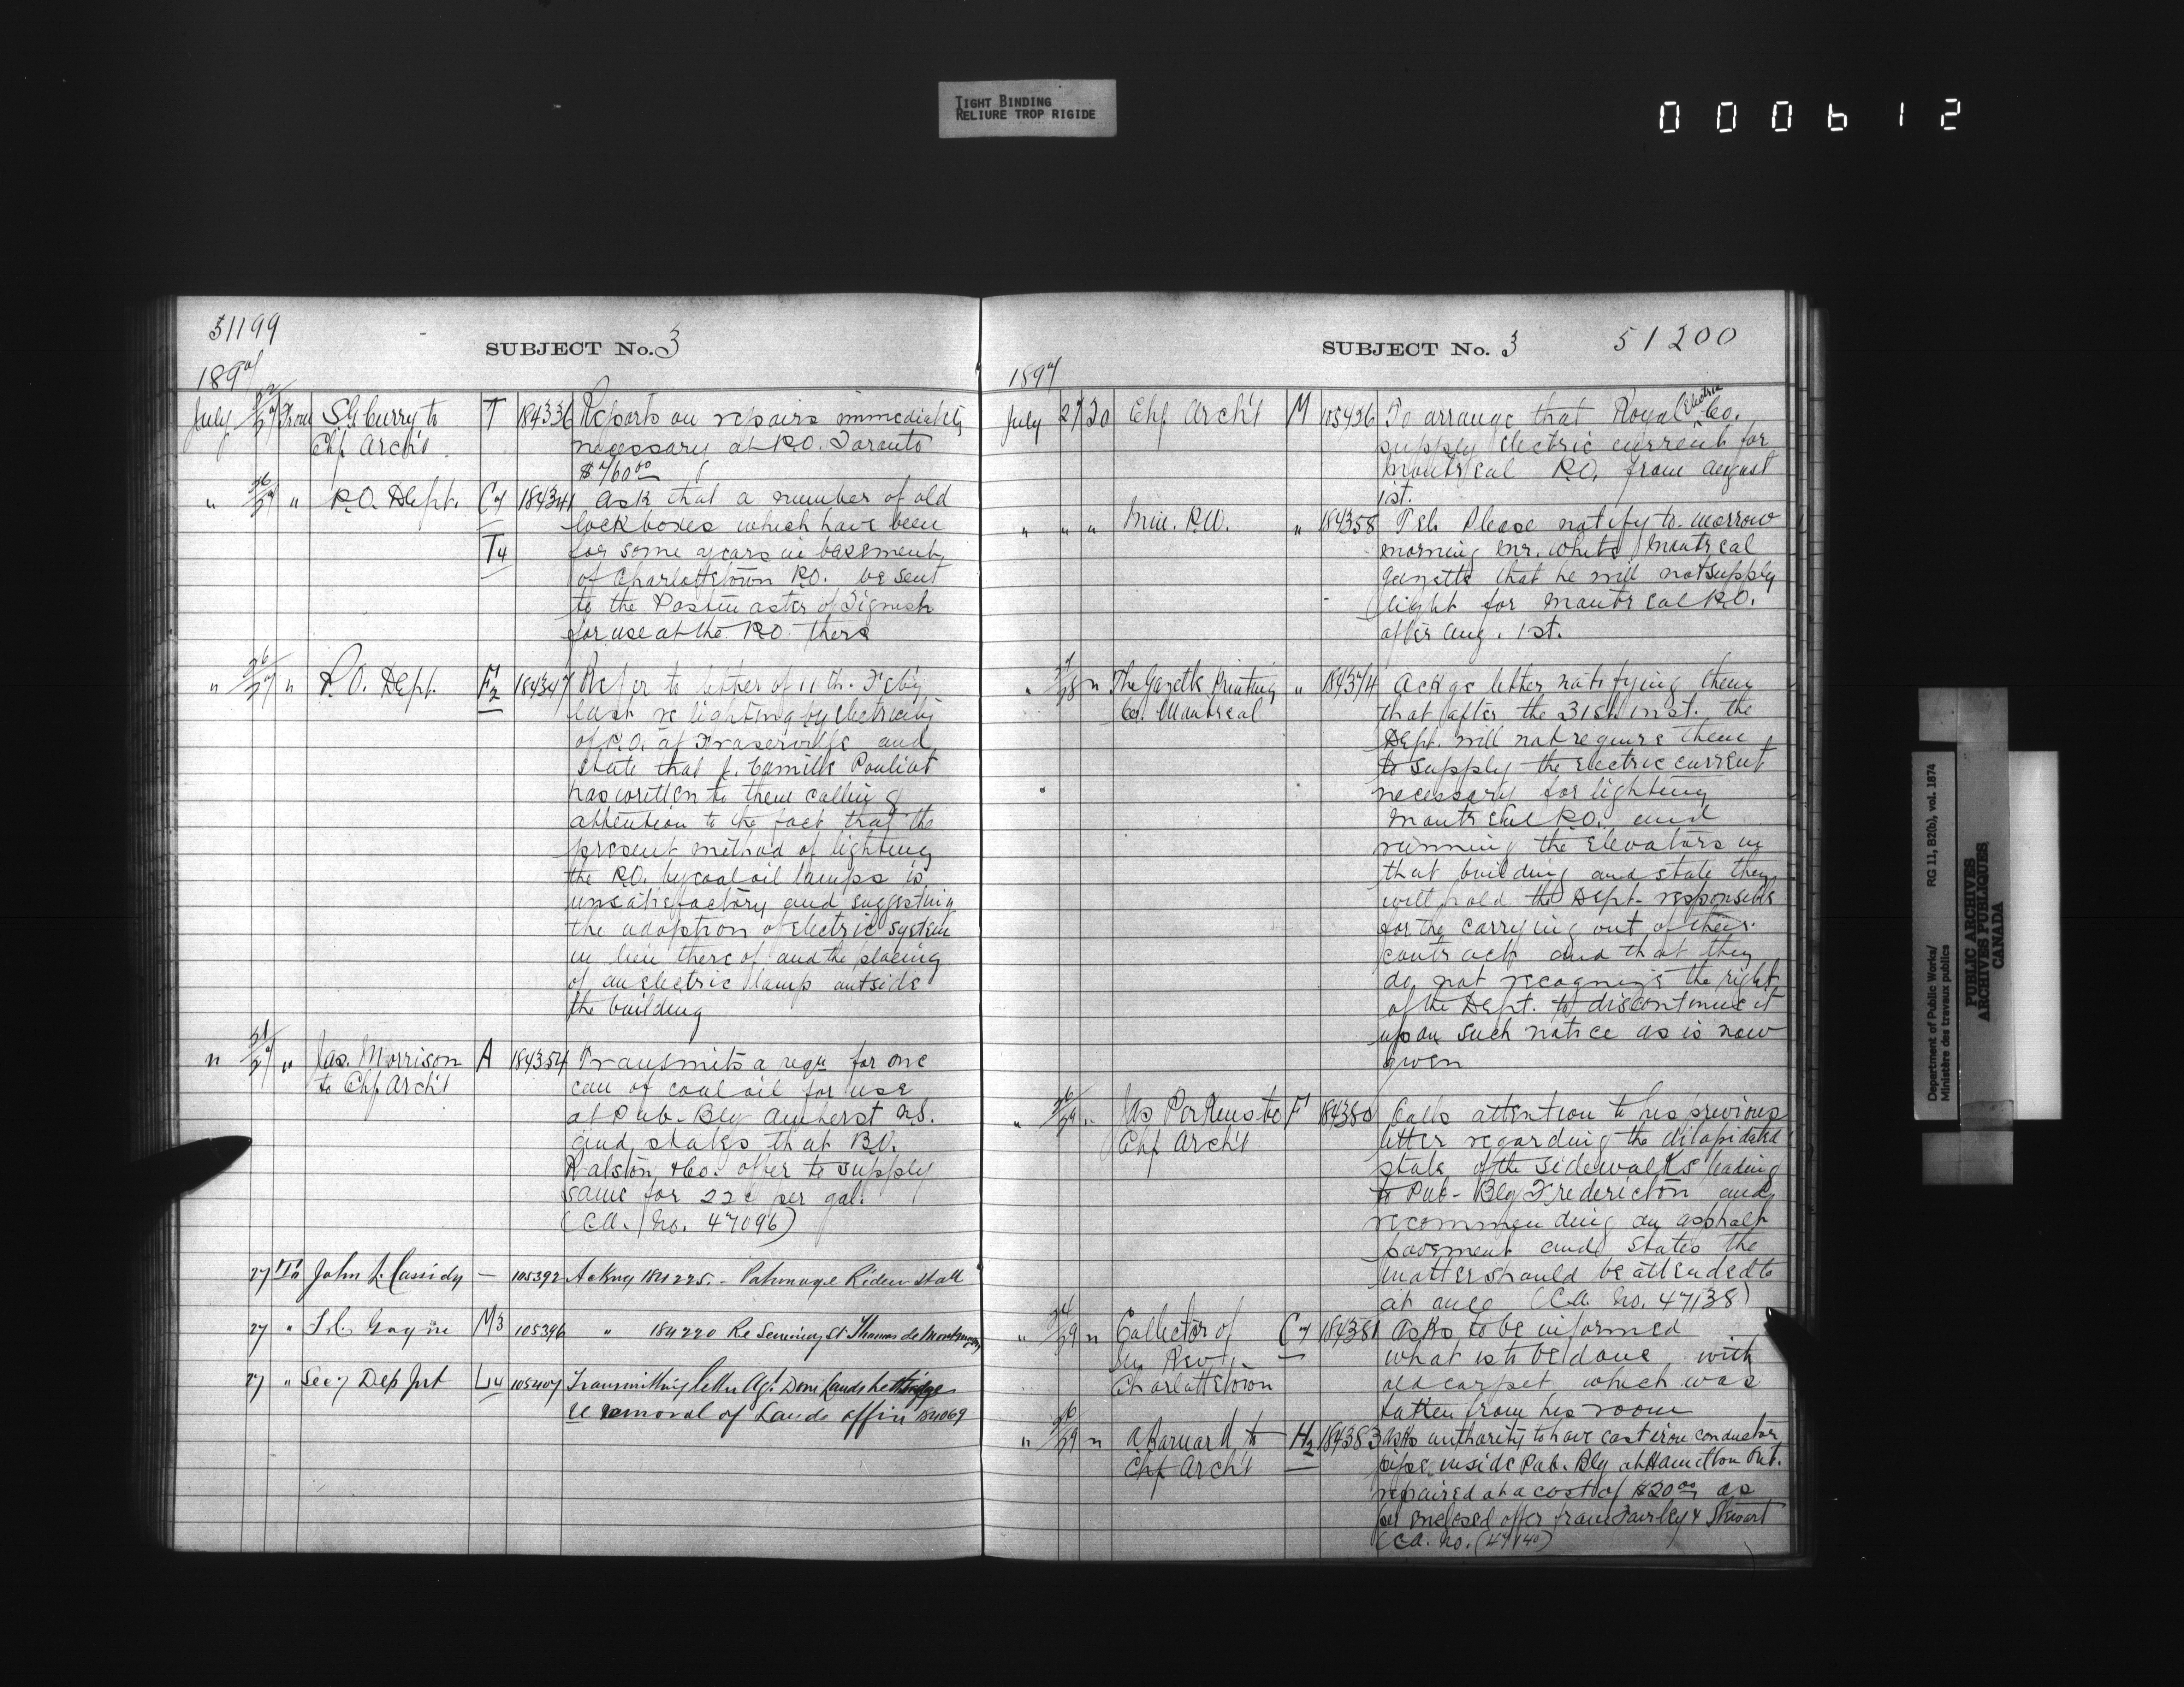 TIGHT BINDING
RELIURE TROP RIGIDE
000612
51199
SUBJECT No. 3
1897
July 27 From S.G. Curry to T 184336 Reports on repairs immediately
Chf Arch't necessary at P.O. Toronto
$760.00
" 26/27 " P.O. Dept. C7 184341 Ask that a number of old
lock boxes which have been
T4 for some years in basement
of Charlottetown P.O. be sent
to the Postmaster of Tignish
for use at the P.O. there
" 26/27 " P.O. Dept. F2 184347 Refer to letter of 11th. Feby
last re lighting by electricity
of P.O. at Fraserville and
state that J. Camille Pouliot
has written to them calling
attention to the fact that the
present method of lighting
the P.O. by coal oil lamps is
unsatisfactory and suggesting
the adoption of electric system
in lieu thereof and the placing
of an electric lamp outside
the building
" 21/27 " Jas. Morrison A 184354 Transmits a reqn for one
to Chf Arch't can of coal oil for use
at Pub. Blg Amherst N.S.
and states that B.D.
Ralston & Co. offer to supply
same for 22c per gal.
(C.A. No. 47096)
27 To John L. Cassidy — 105392 Ackng 184225 - Patronage Rideau Hall
27 " Gagne M3 105396 " 184220 Re Seminary St Thomas de Montmagny
27 " Secy Dep Int L14 105407 Transmitting letter Agt Dom Lands Lethbridge
re removal of Lands office 184069
SUBJECT No. 3 51200
1897
July 27 To Chf Arch't M 105436 To arrange that Royal Electric Co.
supply electric current for
Montreal P.O. from August
1st.
" " " Min. P.W. " 184358 Tel. Please notify to-morrow
morning Mr. White Montreal
Gazette that he will not supply
light for Montreal P.O.
after Aug. 1st.
" 27/28 " The Gazette Printing " 184374 Ackge letter notifying them
Co. Montreal that after the 31st. inst. the
Dept. will not require them
to supply the electric current
necessary for lighting
Montreal P.O. and
running the elevators in
that building and state they
will hold the Dept. responsible
for the carrying out of their
contract and that they
do not recognize the right
of the Dept. to discontinue it
upon such notice as is now
given
" 26/29 " Jas Perkins to F1 184380 Calls attention to his previous
Chf Arch't letter regarding the dilapidated
state of the sidewalks leading
to Pub- Blg Fredericton and
recommending an asphalt
pavement and states the
matter should be attended to
at once (C.A. No. 47138)
" 24/29 " Collector of C7 184381 Asks to be informed
In. Rev. what is to be done with
Charlottetown old carpet which was
taken from his room
" 26/29 " A Barnard to H2 184383 Asks authority to have cast iron conductor
Chf Arch't pipe inside Pub. Blg at Hamilton Ont.
repaired at a cost of $20.00 as
per enclosed offer from Fairley & Stewart
(C.A. No. (47140)
Department of Public Works/ RG 11, B2(b), vol. 1874
Ministère des travaux publics
PUBLIC ARCHIVES
ARCHIVES PUBLIQUES
CANADA